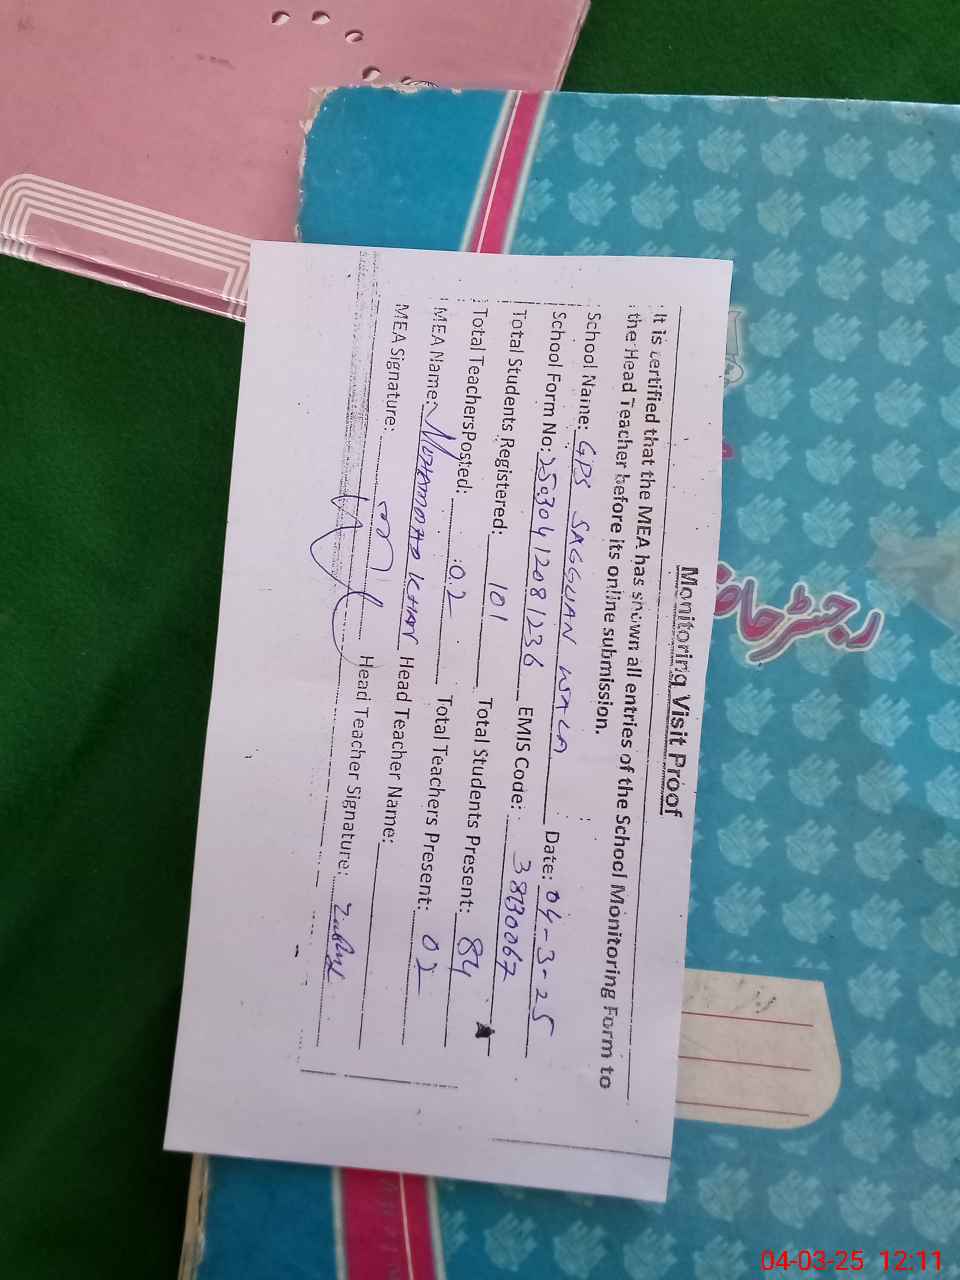 Monitoring Visit Proof
It is certified that the MEA has shown all entries of the School Monitoring Form to
the Head Teacher before its online submission.
School Name: GPS SAGGUAN WALA Date: 04-3-25
School Form No: 25030412081236 EMIS Code: 38130067
Total Students Registered: 101 Total Students Present: 84
Total Teachers Posted: 02 Total Teachers Present: 02
MEA Name: MUHAMMAD KHAN Head Teacher Name:
MEA Signature: Head Teacher Signature:
رجسٹر حاضری
04-03-25 12:11